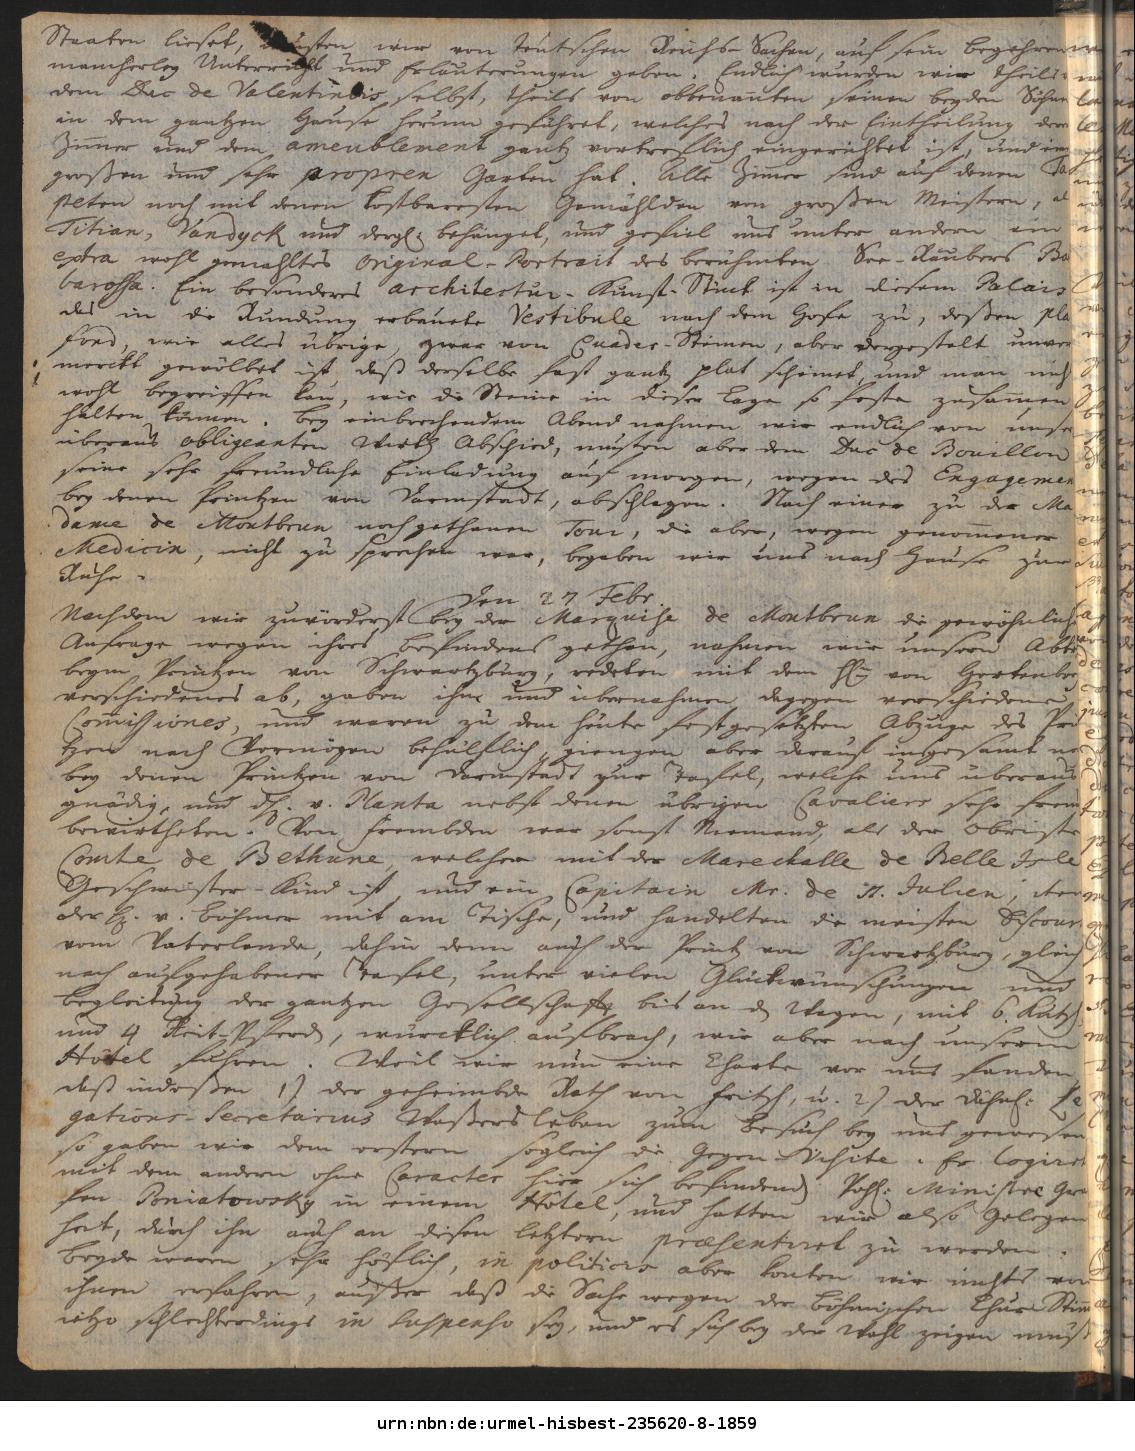 Staaten lieset, musten wir von teutschen Reichs-Sachen, auf sein Begehren
mancherley Unterricht und Erläuterungen geben. Endlich wurden wir theils
dem Duc de Valentinois selbst, theils von obbenannten seinen beyden Söhnen
in dem gantzen Hause herum geführet, welches nach der Eintheilung der
Zimmer und dem ameublement gantz vortreflich eingerichtet ist, und ein
großen und sehr propren Garten hat. Alle Zimmer sind auf denen Ta
peten noch mit denen kostbaresten Gemählden von großen Meistern, al
Titian, Vandyck und dergl. behänget, und gefiel uns unter andern ein
extra wohl gemahltes Original-Portrait des berühmten See-Räubers Ba
barossa. Ein besonderes architectur-Kunst-Stück ist in diesem Palais
das in die Rundung erbauete Vestibule nach dem Hofe zu, deßen pla
fond, wie alles übrige, zwar von Quader-Steinen, aber dergestalt unver
merckt gewölbet ist, daß derselbe fast gantz plat scheinet, und man nich
wohl begreiffen kan, wie die Steine in dieser Lage so feste zusamen
halten können. Bey einbrechendem Abend nahmen wir endlich von unse
überaus obligeanten Wirth Abschied, musten aber dem Duc de Bouillon
seine sehr freundliche Einladung auf morgen, wegen des Engagemen
bey denen Printzen von Darmstadt, abschlagen. Nach einer zu der Ma
dame de Montbrun noch gethanen Tour, die aber, wegen genommener
Medicin, nicht zu sprechen war, begaben wir uns nach Hause zur
Ruhe.
Den 27 Febr.
Nachdem wir zuvörderst bey der Marquise de Montbrun die gewöhnliche
Anfrage wegen ihres Befindens gethan, nahmen wir unsern Abtr
beym Printzen von Schwartzburg, redeten mit dem Hn von
verschiedenes ab, gaben ihm und übernahmen dagegen verschiedene
Commissiones, und waren zu dem heute festgesetzten Abzuge des Prin
tzen nach Vermögen behülflich, giengen aber darauf insgesamt
bey denen Printzen von Darmstadt zur Tafel, welche uns überaus
gnädig, und H. v. Planta nebst denen übrigen Cavaliers sehr freund
bewirtheten. Von Frembden war sonst Niemand, als der Obriste
Comte de Bethune, welcher mit der Marechalle de Belle Isle
Geschwister-Kind ist, und ein Capitain Mr. de St. Julien,
der H. v. Böhmer mit am Tische, und handelten die meisten Discour
vom Vaterlande, dahin denn auch der Printz von Schwartzburg, gleich
nach aufgehabener Tafel, unter vielen Glückwünschungen und
Begleitung der gantzen Gesellschafft bis an den Wagen, mit 6. Kutsch
und 4 Reit-Pferden, würcklich aufbrach, wir aber nach unserm
Hôtel fuhren. Weil wir nun eine Charte vor uns fanden
daß indeßen 1) der geheimbde Rath von Fritsch, u. 2) der Dähn: Le
gations-Secretarius Waßersleben zum Besuch bey uns gewesen
so gaben wir dem erstern sogleich die Gegen-Visite. Er logiret
mit dem andern ohne Caracter hier sich befindenden Pohl: Ministre Gra
fen Poniatowsky in einem Hôtel, und hatten wir also Gelegen
heit, durch ihn auch an diesen letztern præsentiret zu werden.
Beyde waren sehr höflich, in politicis aber konten wir nichts von
ihnen erfahren, außer daß die Sache wegen der Böhmischen Chur-Stimm
ietzo schlechterdings in suspenso sey, und es sich bey der Wahl zeigen muß
urn:nbn:de:urmel-hisbest-235620-8-1859